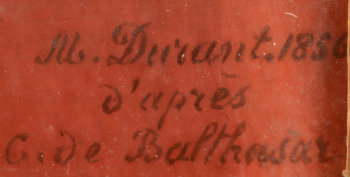 M. Durant. 1856
d'après
C. de Balthasar